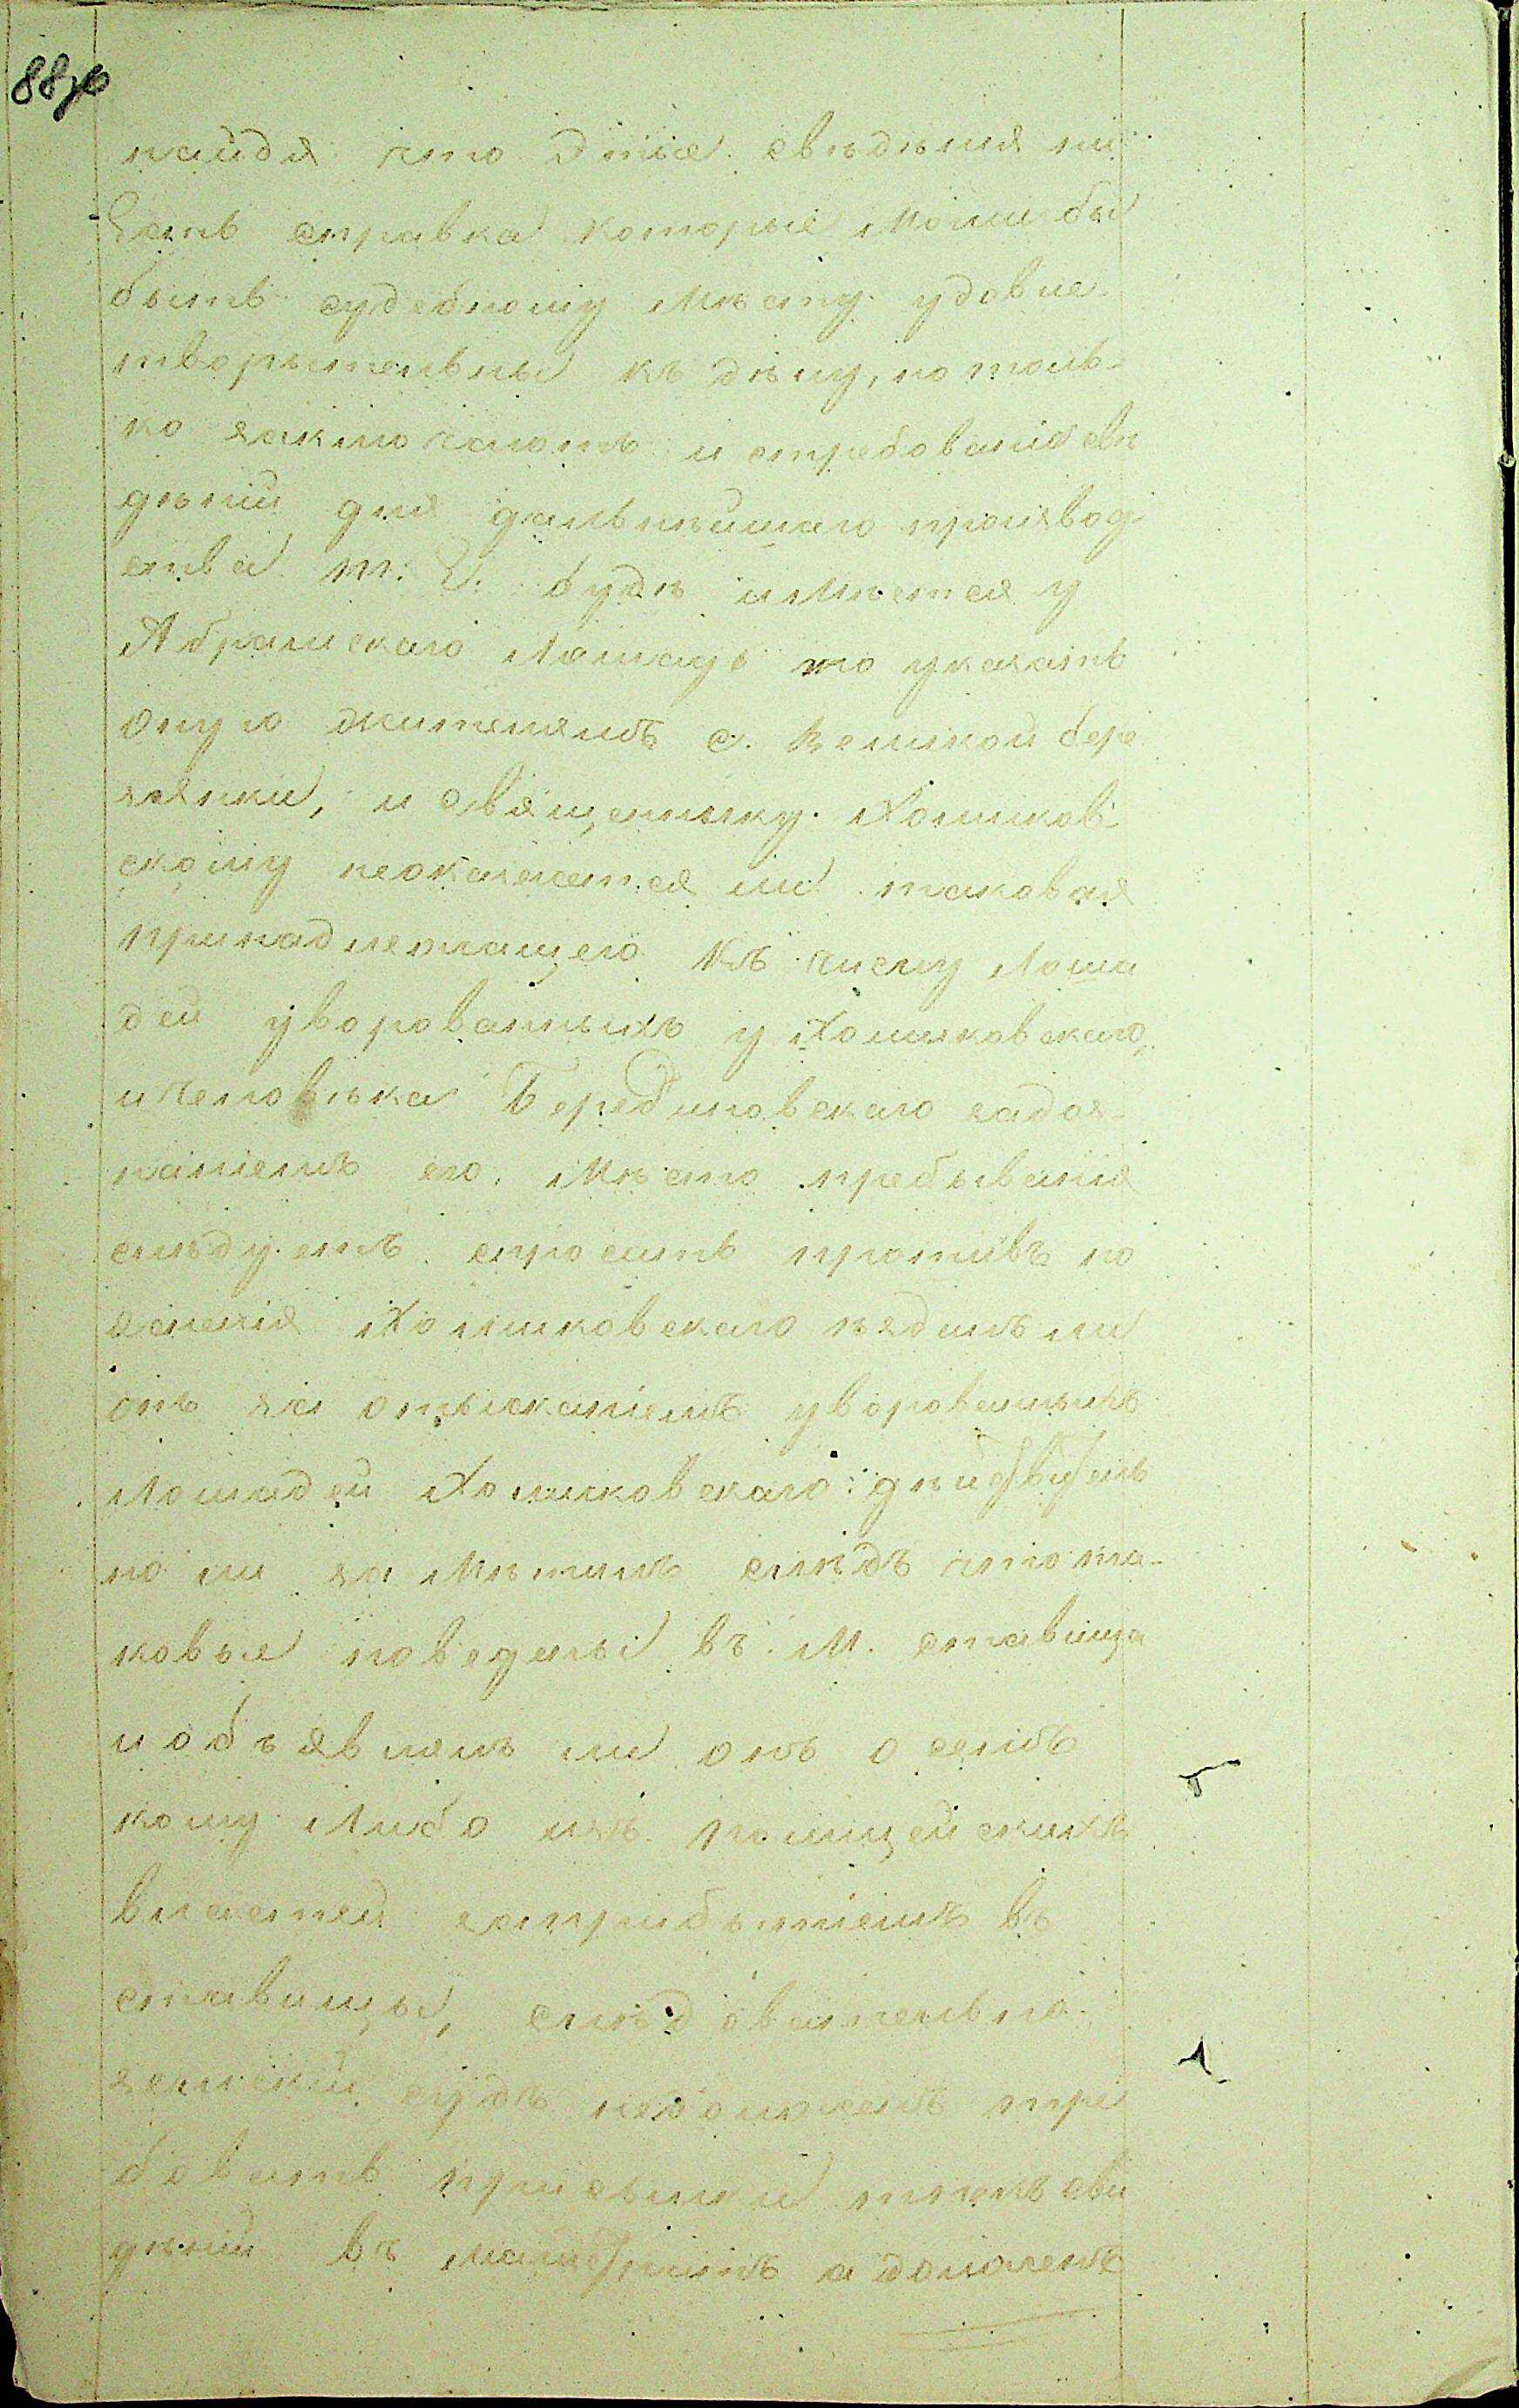 88 об
найдя что Этые свѣдѣния не
Есть справка которые Могли бы
быть судебному Мѣсту удовле-
творытельны къ дѣлу, но толь-
ко заключають и стребования свѣ
дѣний для дальнѣйшаго производ
ства т: Е: будѣ имѣется у
Абрамскаго Лошадь то указать
оную жителямъ с. Великой бере
зянки, и священыку Хомиков
скому неокажется ли таковая
принадлежащего Къ числу Лоша
дей уворованныхъ у Хомиковскаго,
и человѣка Бередиловскаго
его, Мѣсто пребывания
слѣдуетъ спросить противъ по
яснения Хомиковскаго ѣздилъ ли
онъ за отысканіемъ уворованныхъ
Лошадей Хомиковскаго: дѣйствытель
но ли за Мѣтилъ слѣдъ что та-
ковые поведены въ М. ставища
и объявлялъ ли онъ о семъ
кому Либо изъ полицейскихъ
властей запрыбытіемъ въ
ставищы, слѣдовательно
земскій судъ недолженъ тре
бовать присылки тѣхъ свѣ
дѣній въ а долженъ